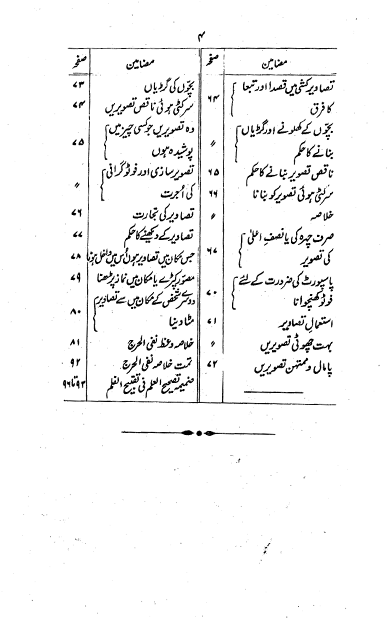 ۴
مضامین صفحہ
تصاویر کشی میں قصدا اور تبعا
کا فرق ۶۴
بچوں کے کھلونے اور گڑیاں
بنانے کا حکم "
ناقص تصویر بنانے کا حکم ۶۵
سر کٹی ہوئی تصویر کو بنانا ۶۶
خلاصہ "
صرف چہرہ کی یا نصف اعلیٰ
کی تصویر ۶۷
پاسپورٹ کی ضرورت کے لئے
فوٹو کھنچوانا ۷۰
استعمال تصاویر ۷۱
بہت چھوٹی تصویریں "
پامال و ممتہن تصویریں ۷۲
مضامین صفحہ
بچوں کی گڑیاں ۷۳
سر کٹی ہوئی ناقص تصویریں ۷۴
وہ تصویریں جو کسی چیز میں
پوشیدہ ہوں ۷۵
تصویر سازی اور فوٹو گرافی
کی اجرت "
تصاویر کی تجارت ۷۶
تصاویر کے دیکھنے کا حکم ۷۷
جس مکان میں تصاویر ہوں اس میں داخل ہونا ۷۸
مصور کپڑے یا مکان میں نماز پڑھنا ۷۹
دوسرے شخص کے مکان میں سے تصاویر
مٹا دینا ۸۰
خلاصہ وعظ نفی الحرج ۸۱
تمت خلاصہ نفی الحرج ۹۲
ضمیمہ تصحیح العلم فی تقبیح الفلم ۹۳ تا ۹۶